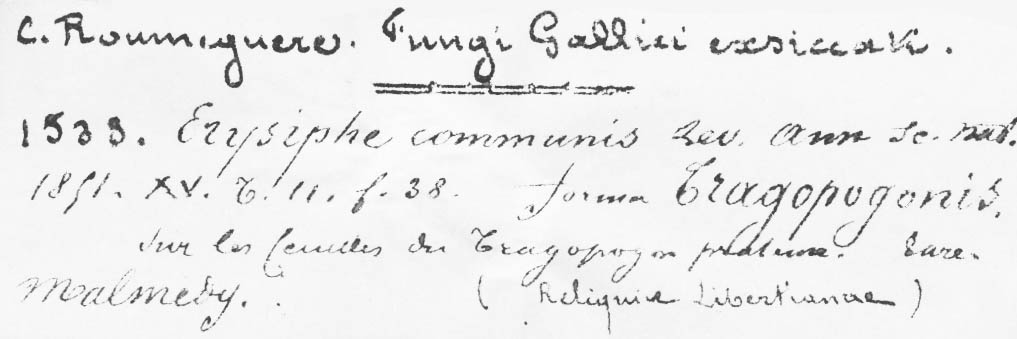 C. Roumeguere. Fungi Gallici exsiccati.
1533. Erysiphe communis Lev. Ann Sc. nat.
1851. XV. T. 11. f. 38. forma Tragopogonis.
Sur les feuilles du Tragopogon pratense. Rare.
Malmedy. (Reliquiæ Libertianae)